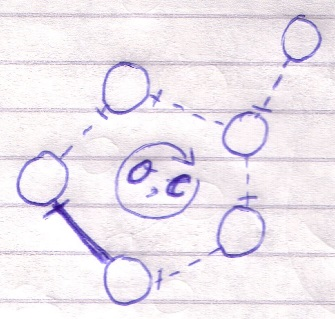 O, C